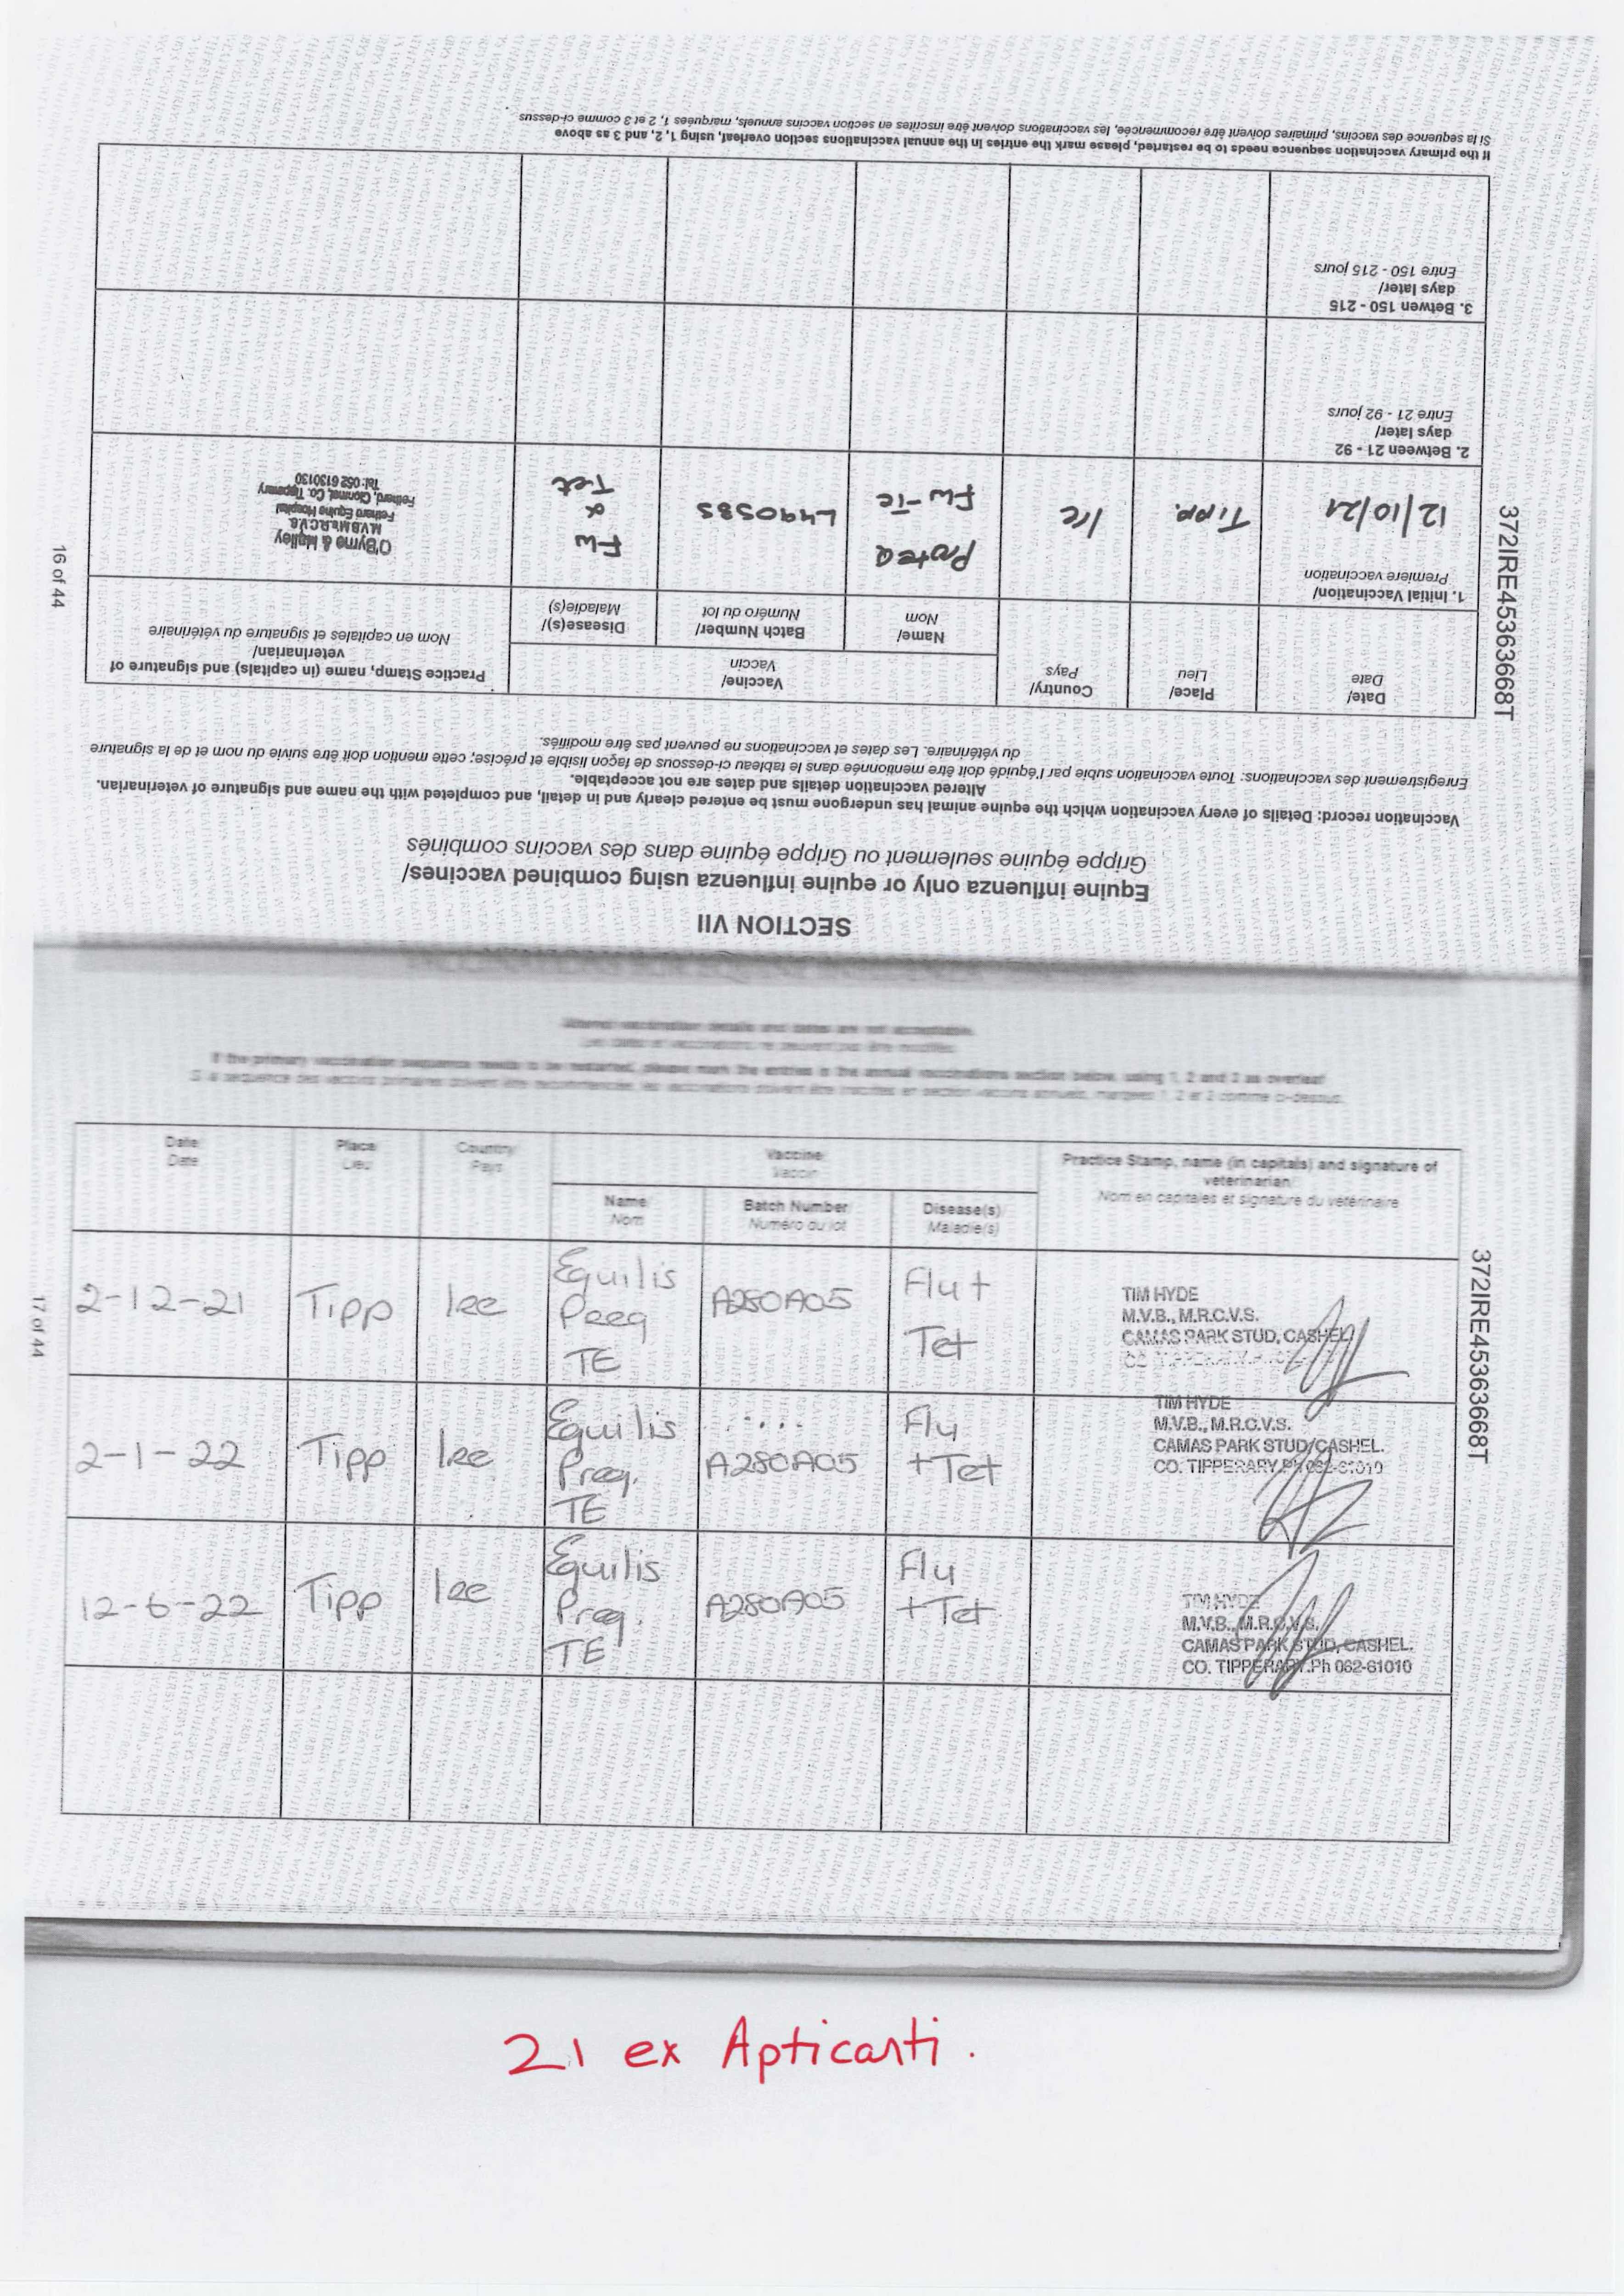 SECTION VII
Equine influenza only or equine influenza using combined vaccines/
Grippe équine seulement ou Grippe équine dans des vaccins combinés
Vaccination record: Details of every vaccination which the equine animal has undergone must be entered clearly and in detail, and completed with the name and signature of veterinarian.
Altered vaccination details and dates are not acceptable.
Enregistrement des vaccinations: Toute vaccination subie par l'équidé doit être mentionnée dans le tableau ci-dessous de façon lisible et précise; cette mention doit être suivie du nom et de la signature
du vétérinaire. Les dates et vaccinations ne peuvent pas être modifiés.
372IRE45363668T
Date/
Date
Place/
Lieu
Country/
Pays
Vaccine/
Vaccin
Name/
Nom
Batch Number/
Numéro du lot
Disease(s)/
Maladie(s)
Practice Stamp, name (in capitals) and signature of
veterinarian/
Nom en capitales et signature du vétérinaire
1. Initial Vaccination/
Premiere vaccination
12/10/21
Tipp.
Ire
ProteQ
Flu-Te
L490585
Flu
&
Tet
O'Byrne & Halley
M.V.B M.R.C.V.S.
Fethard Equine Hospital
Fethard, Clonmel, Co. Tipperary
Tel: 052 6130130
2. Between 21 - 92
days later/
Entre 21 - 92 jours
3. Betwen 150 - 215
days later/
Entre 150 - 215 jours
If the primary vaccination sequence needs to be restarted, please mark the entries in the annual vaccinations section overleaf, using 1, 2, and 3 as above
Si la séquence des vaccins, primaires doivent être recommencée, les vaccinations doivent être inscrites en section vaccins annuels, marquées 1, 2 et 3 comme ci-dessus
16 of 44
Altered vaccination details and dates are not acceptable.
If the primary vaccination sequence needs to be restarted, please mark the entries in the annual vaccinations section below, using 1, 2 and 3 as overleaf
Date
Date
Place
Lieu
Country
Pays
Vaccine
Vaccin
Name
Nom
Batch Number
Numéro du lot
Disease(s)
Maladie(s)
Practice Stamp, name (in capitals) and signature of
veterinarian
Nom en capitales et signature du vétérinaire
2-12-21
Tipp
Ire
Equilis
Preq
TE
A280A05
Flu +
Tet
TIM HYDE
M.V.B., M.R.C.V.S.
CAMAS PARK STUD, CASHEL
2-1-22
Tipp
Ire
Equilis
Preq.
TE
A280A05
Flu
+Tet
TIM HYDE
M.V.B., M.R.C.V.S.
CAMAS PARK STUD, CASHEL.
CO. TIPPERARY.Ph 062-61010
12-6-22
Tipp
Ire
Equilis
Preq.
TE
A280A05
Flu
+Tet
TIM HYDE
M.V.B., M.R.C.V.S.
CAMAS PARK STUD, CASHEL.
CO. TIPPERARY.Ph 062-61010
372IRE45363668T
17 of 44
21 ex Apticanti.